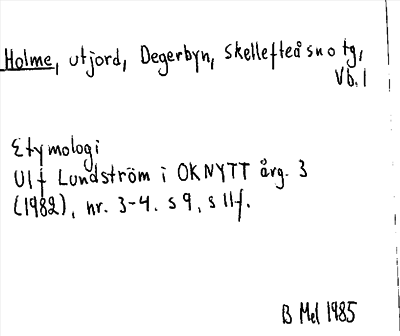 Holme, utjord, Degerbyn, Skellefteå sn o tg,
Vb.l
Etymologi
Ulf Lundström i OKNYTT årg. 3
(1982), nr. 3-4. s 9, s 11f.
B Mel 1985